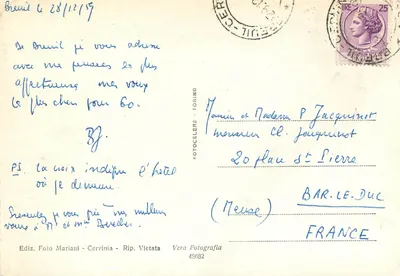 Breuil le 28/12/59
De Breuil je vous adresse
avec mes pensées les plus
affectueuses mes voeux
les plus chers pour 60.
PS. La croix indique l'hôtel
où je demeure
Presentez je vous prie mes meilleurs
voeux à Mr et Mme
25
BREUIL-CER
Monsieur et Madame P Jacquinot
Monsieur Cl. Jacquinot
20 place St Pierre
BAR.LE.DUC
(Meuse)
FRANCE
FOTOCELERE - TORINO
Ediz. Foto Mariani - Cervinia - Rip. Vietata
Vera Fotografia
49682